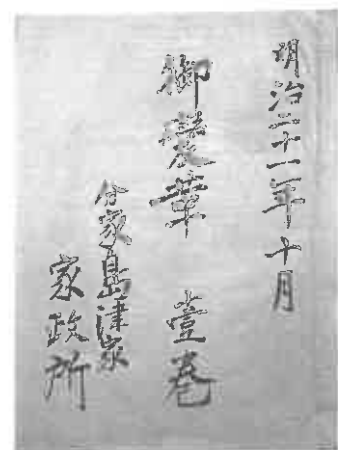 明治二十一年十月
御變革 壹卷
分家島津家
家政所